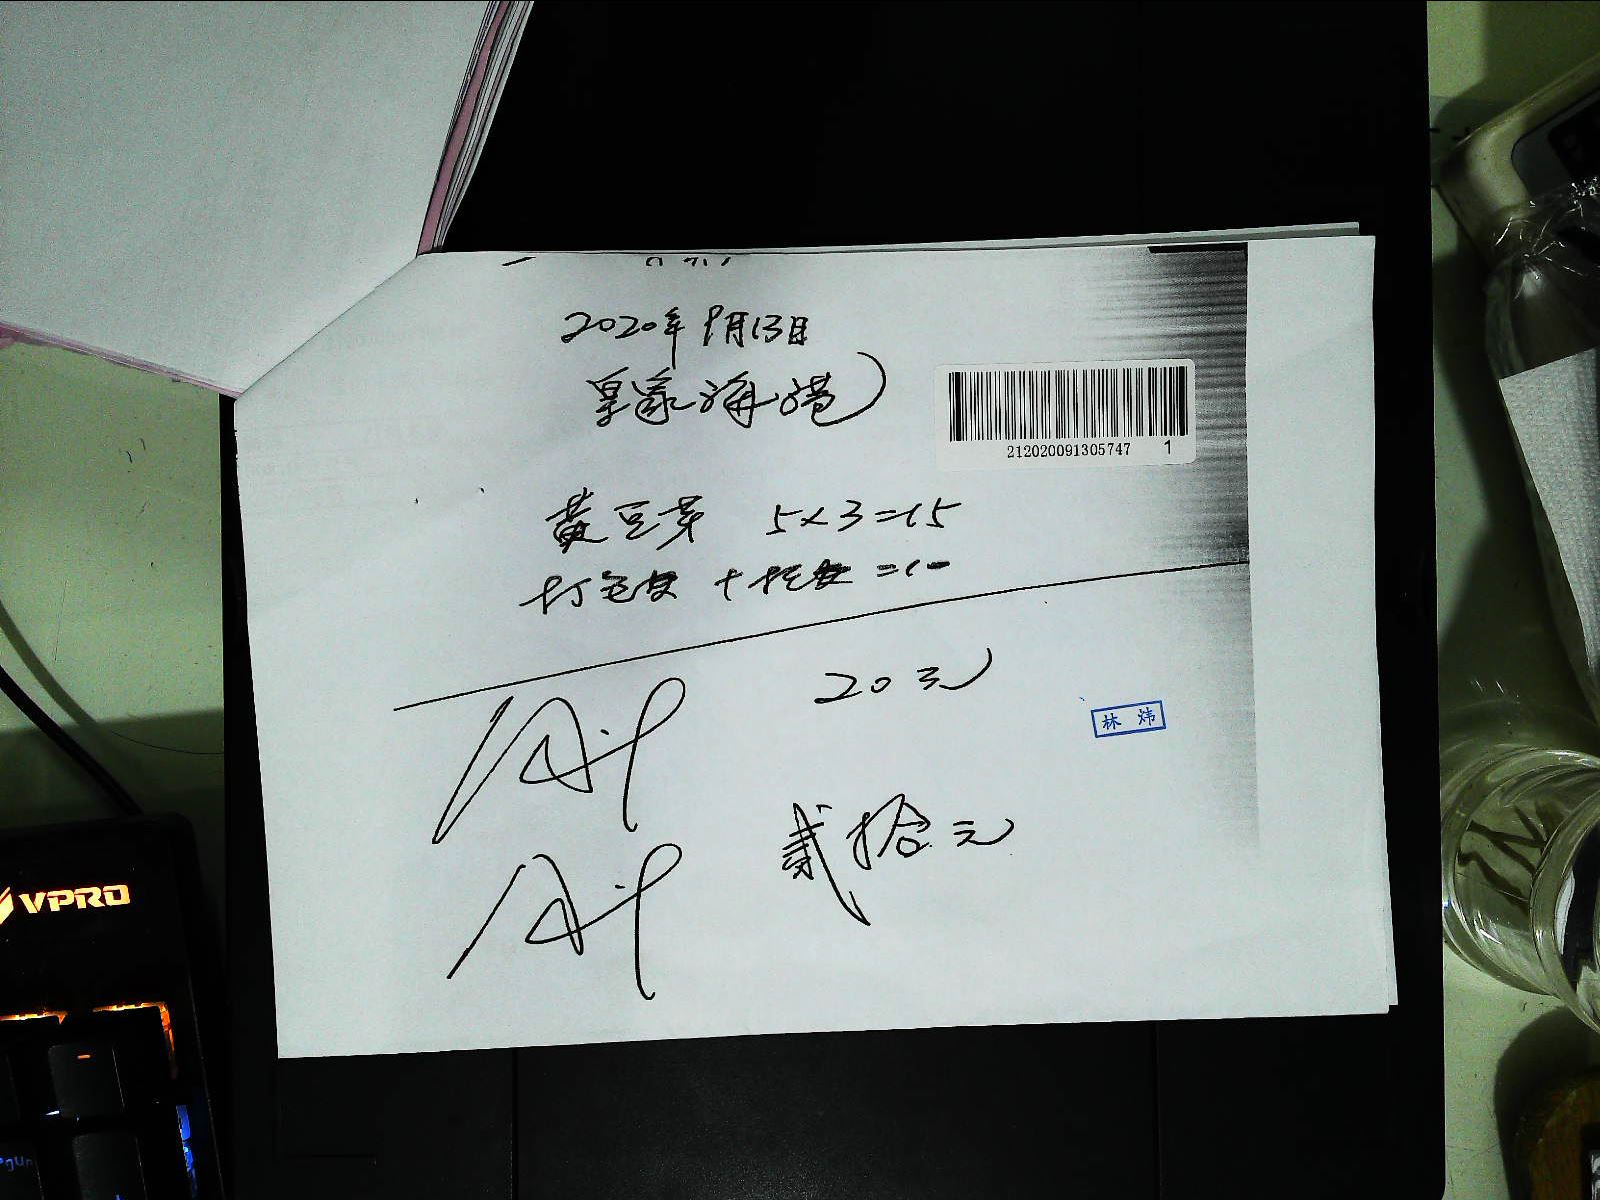 2020年9月13日
皇家海港
212020091305747 1
黄豆芽 5×3=15
打包费 +
20元
林 炜
贰拾元
VPRO
PgUp